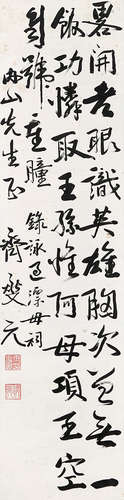 畧開老眼識英雄胸次並無一
飯功憐取王孫惟阿母項王空
自號重瞳 錄詠過漂母祠
內山先生正 齊燮元